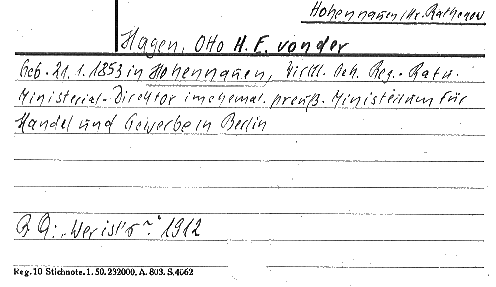 Hohennauen/Kr. Rathenow
Hagen, Otto H. F. von der
Geb. 21.1.1853 in Hohennauen, Wirkl. Geh. Reg.-Rat u.
Ministerial-Direktor im ehemal. preuß. Ministerium für
Handel und Gewerbe in Berlin
B Q: „Wer ist's?" 1912
Reg. 10 Stichnote. 1. 50. 232000. A. 803. S. 4662